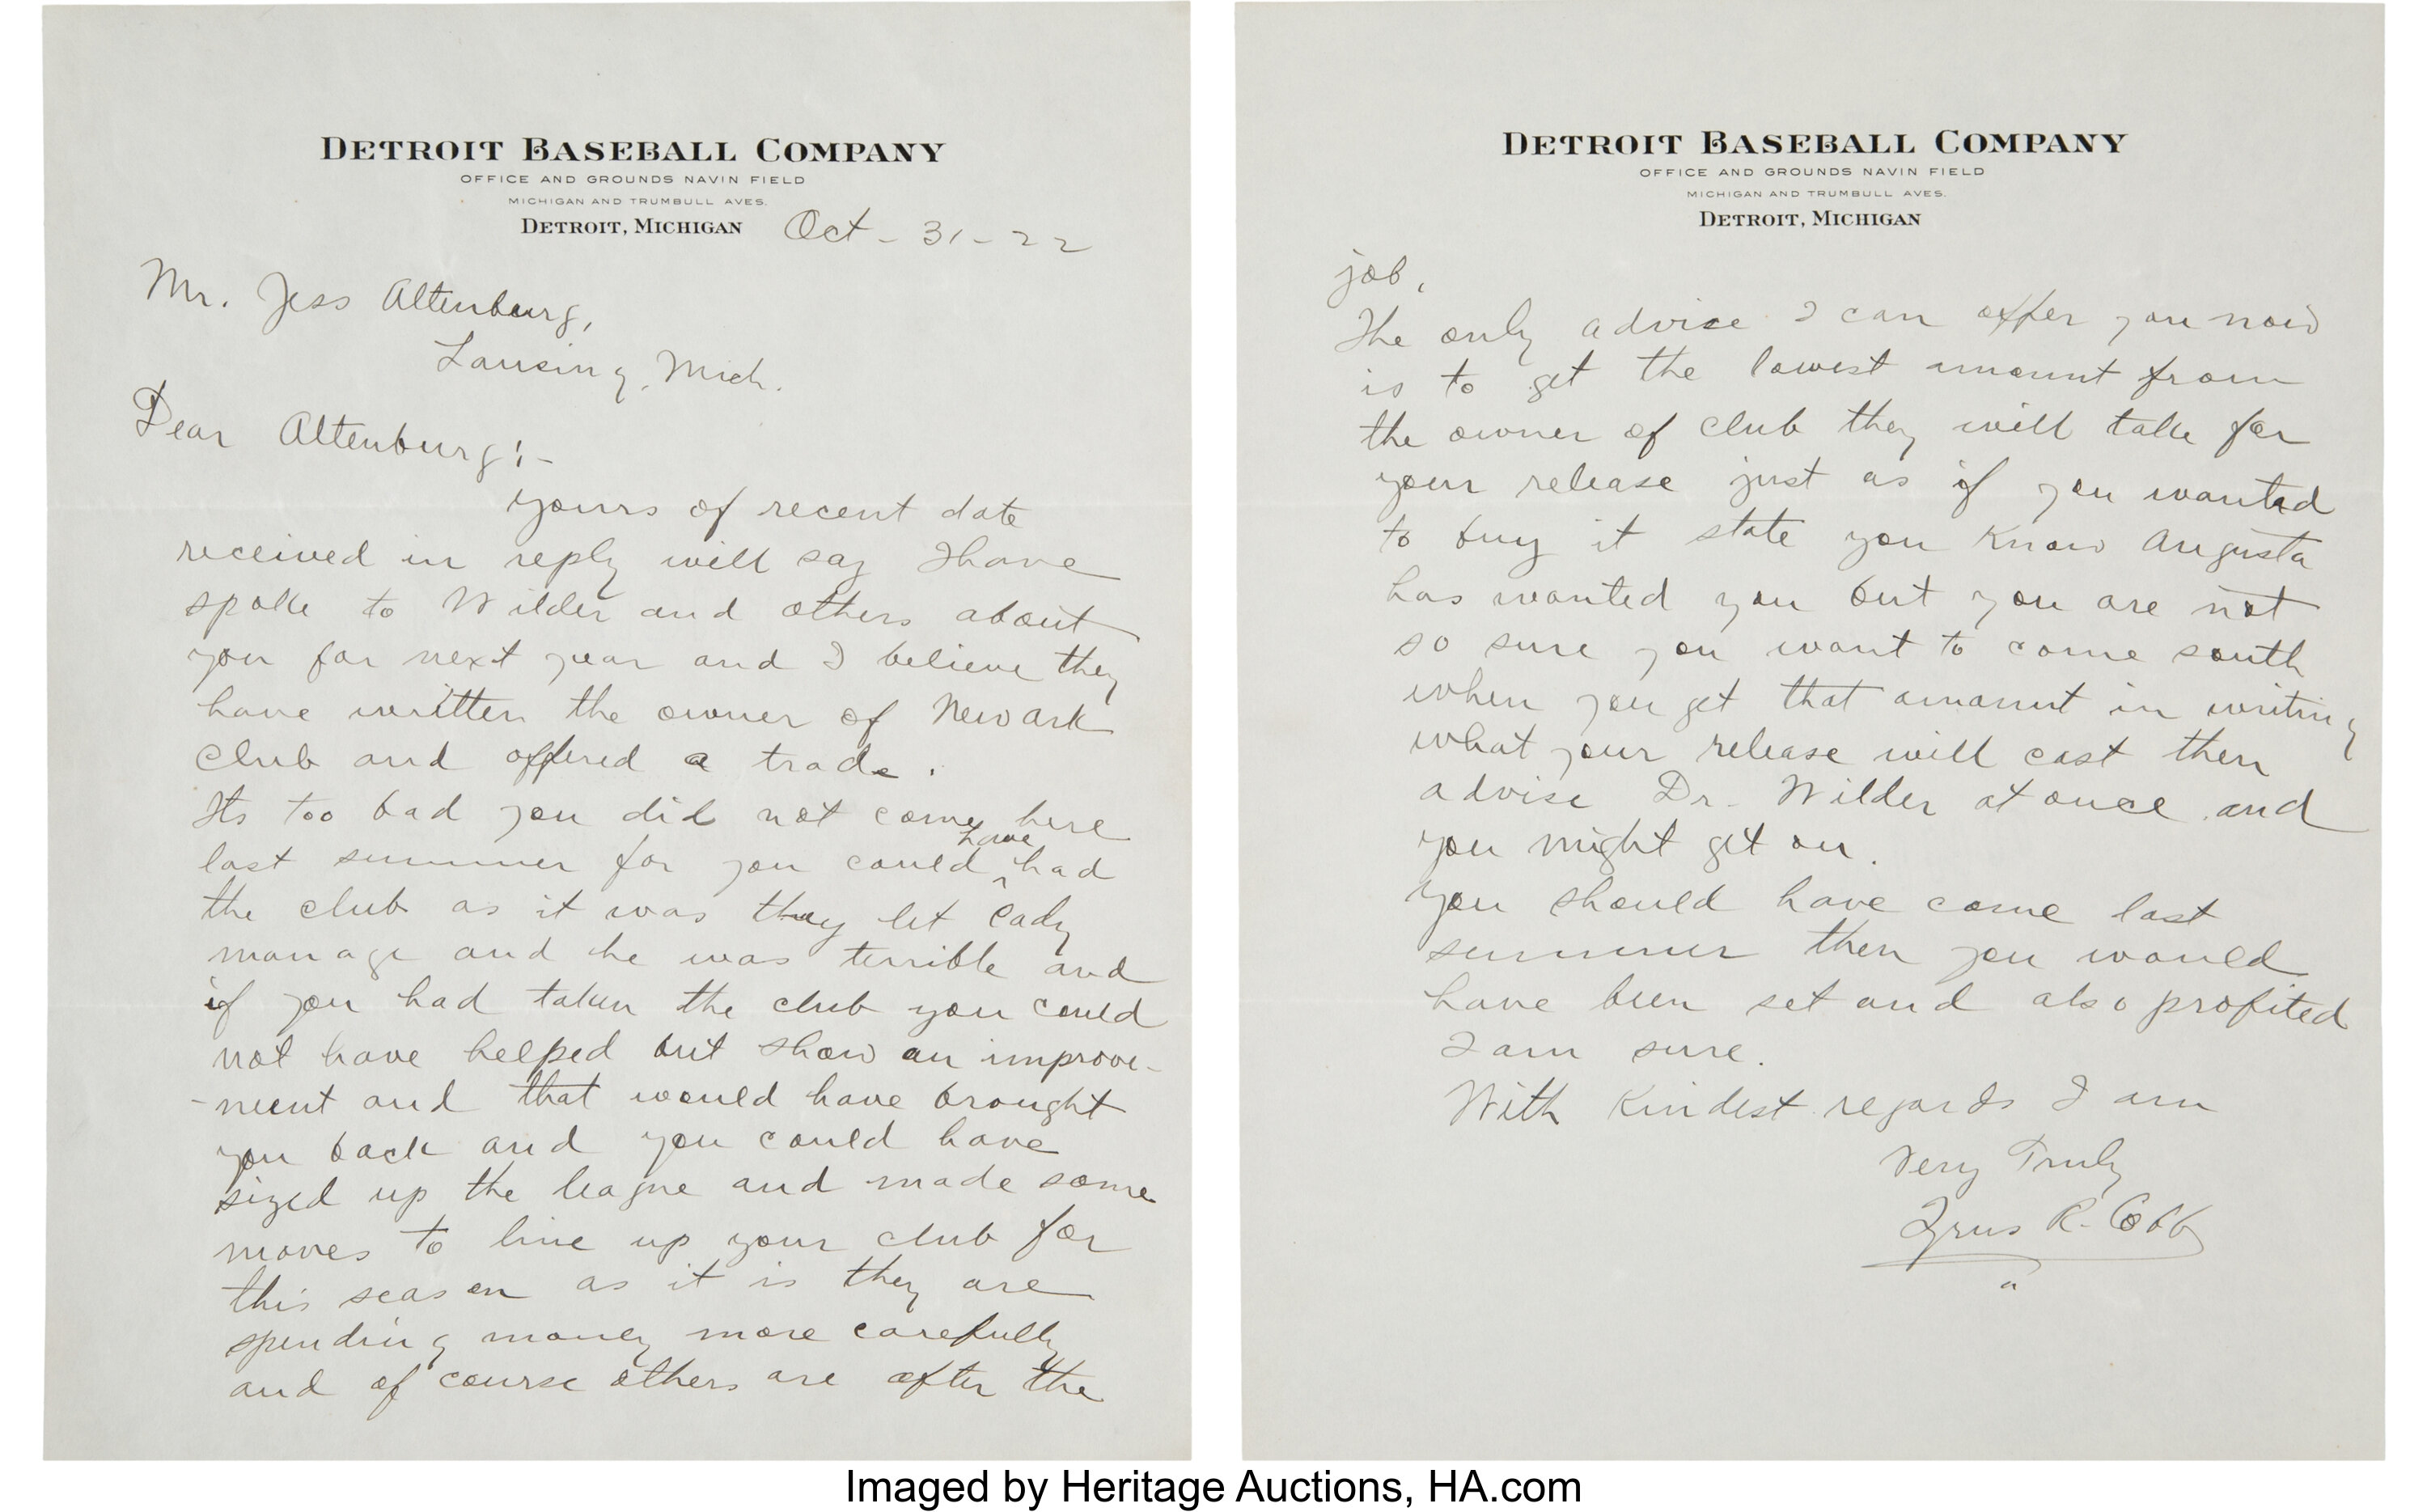 DETROIT BASEBALL COMPANY
OFFICE AND GROUNDS NAVIN FIELD
MICHIGAN AND TRUMBULL AVES.
DETROIT, MICHIGAN
Oct - 31 - 22
Mr. Jess Altenburg,
Lansing, Mich.
Dear Altenburg:-
yours of recent date
received in reply will say I have
spoke to Wilder and others about
you for next year and I believe they
have written the owner of Newark
club and offered a trade.
Its too bad you did not come here
last summer for you could have had
the club as it was they let Cady
manage and he was terrible and
if you had taken the club you could
not have helped but show an improve-
-ment and that would have brought
you back and you could have
sized up the league and made some
moves to line up your club for
this season as it is they are
spending money more carefully
and of course others are after the
DETROIT BASEBALL COMPANY
OFFICE AND GROUNDS NAVIN FIELD
MICHIGAN AND TRUMBULL AVES.
DETROIT, MICHIGAN
job,
The only advise I can offer you now
is to get the lowest amount from
the owner of club they will take for
your release just as if you wanted
to buy it state you know Augusta
has wanted you but you are not
so sure you want to come south
when you get that amount in writing
what your release will cost then
advise Dr. Wilder at once and
you might get on.
you should have come last
summer then you would
have been set and also profited
I am sure.
With kindest regards I am
Very Truly
Tyrus R. Cobb
Imaged by Heritage Auctions, HA.com